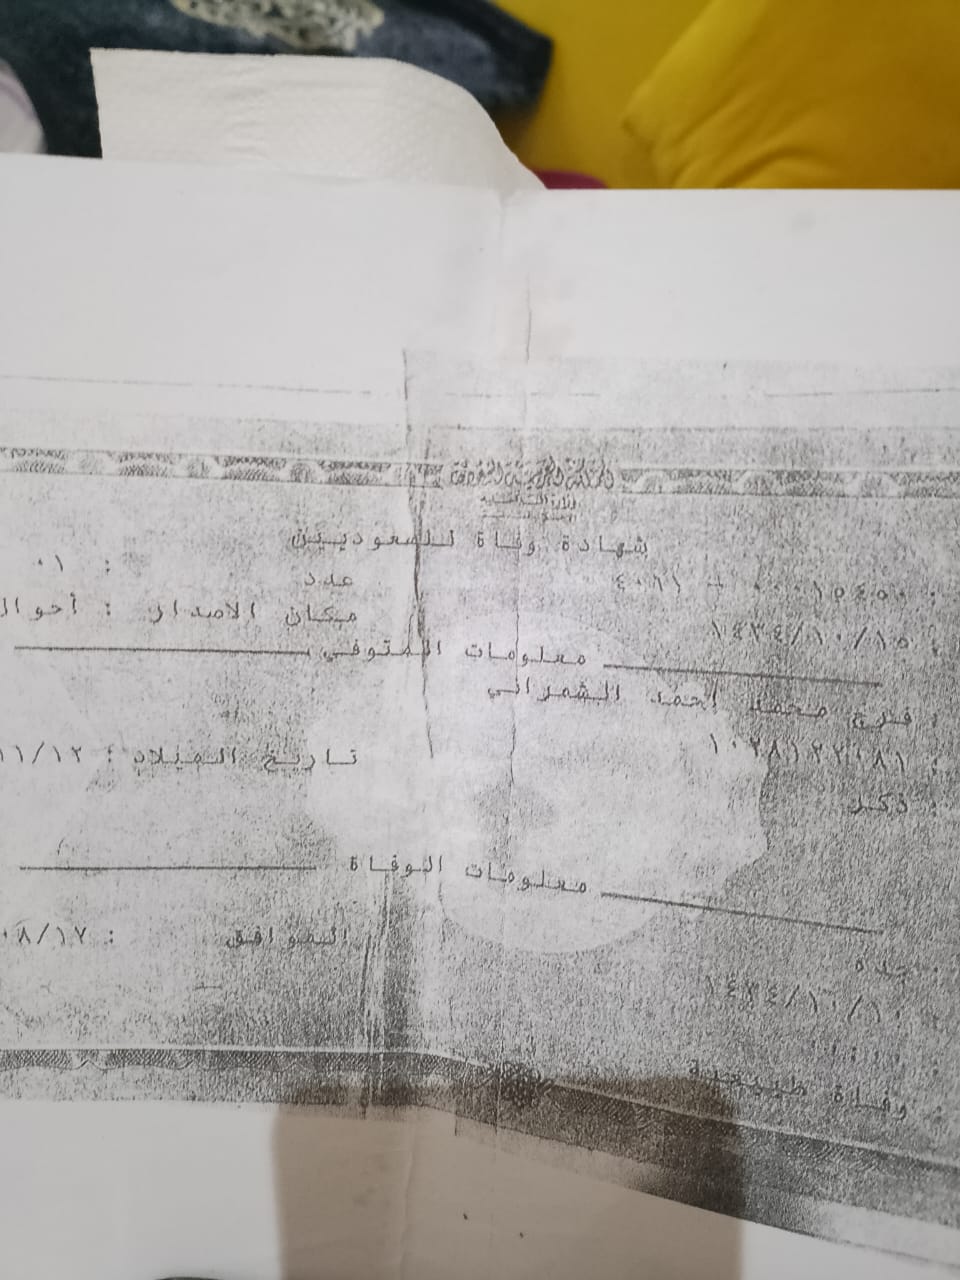 المملكة العربية السعودية
وزارة الداخلية
شهادة وفاة للسعوديين
: ٠٠٠١٥٤٥٠ - ٤٠٦١
عدد : ٠١
: ١٤٣٤/١٠/١٥
مكان الاصدار : أحوال
معلومات المتوفي
: محمد أحمد الشمراني
تاريخ الميلاد : ١١/١٢
: ذكر
معلومات الوفاة
: جدة
: ١٤٣٤/١٠/١٠
الموافق : ٠٨/١٧
: وفاة طبيعية